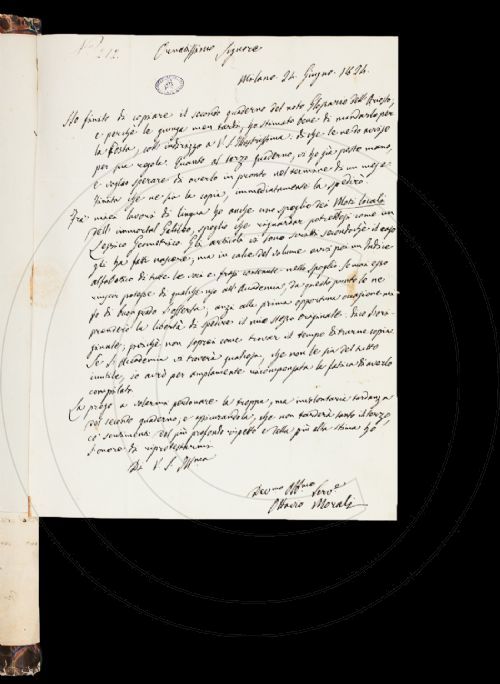 N.° 212.
Ornatissimo Signore
Milano 24. Giugno. 1824.
Ho finito di copiare il secondo quaderno del noto Glossario dell'Ariosto,
e perchè le giunga men tardi, ho stimato bene di mandarlo per
la Posta, coll'indirizzo a V. S. Illustrissima. Di che le ne do avviso
per sua regola. Quanto al terzo quaderno, vi ho già posto mano,
e voglio sperare di averlo in pronto nel termine di un mese.
Finita che ne sia la copia, immediatamente la spedirò.
Fra' miei lavori di lingua ho anche uno spoglio dei Moti locali
dell'immortal Galileo, spoglio che riguardar potrebbesi come un
Lessico Geometrico. Gli articoli vi sono scritti secondochè il caso
gli ha fatti nascere, ma in calce del volume avvi poi un Indice
alfabetico di tutte le voci e frasi contenute nello spoglio. Se mai esso
riuscir potesse di qualsisia uso all'Accademia, da questo punto le ne
fo di buon grado l'offerta, anzi alla prima opportuna occasione mi
prenderò la libertà di spedire il mio stesso originale. Dico l'ori-
ginale, perchè non saprei come trovar il tempo di trarne copia.
Se l'Accademia vi troverà qualcosa, che non le sia del tutto
inutile, io avrò per ampiamente ricompensata la fatica di averlo
compilato.
La prego a volermi perdonare la troppa, ma involontaria tardanza
del secondo quaderno, e assicurandola, che non tarderà tanto il terzo,
co' sentimenti del più profondo rispetto e della più alta stima ho
l'onore di riprotestarmi
Di V. S. Illma
Devmo Obbmo Serve
Ottavio Morali